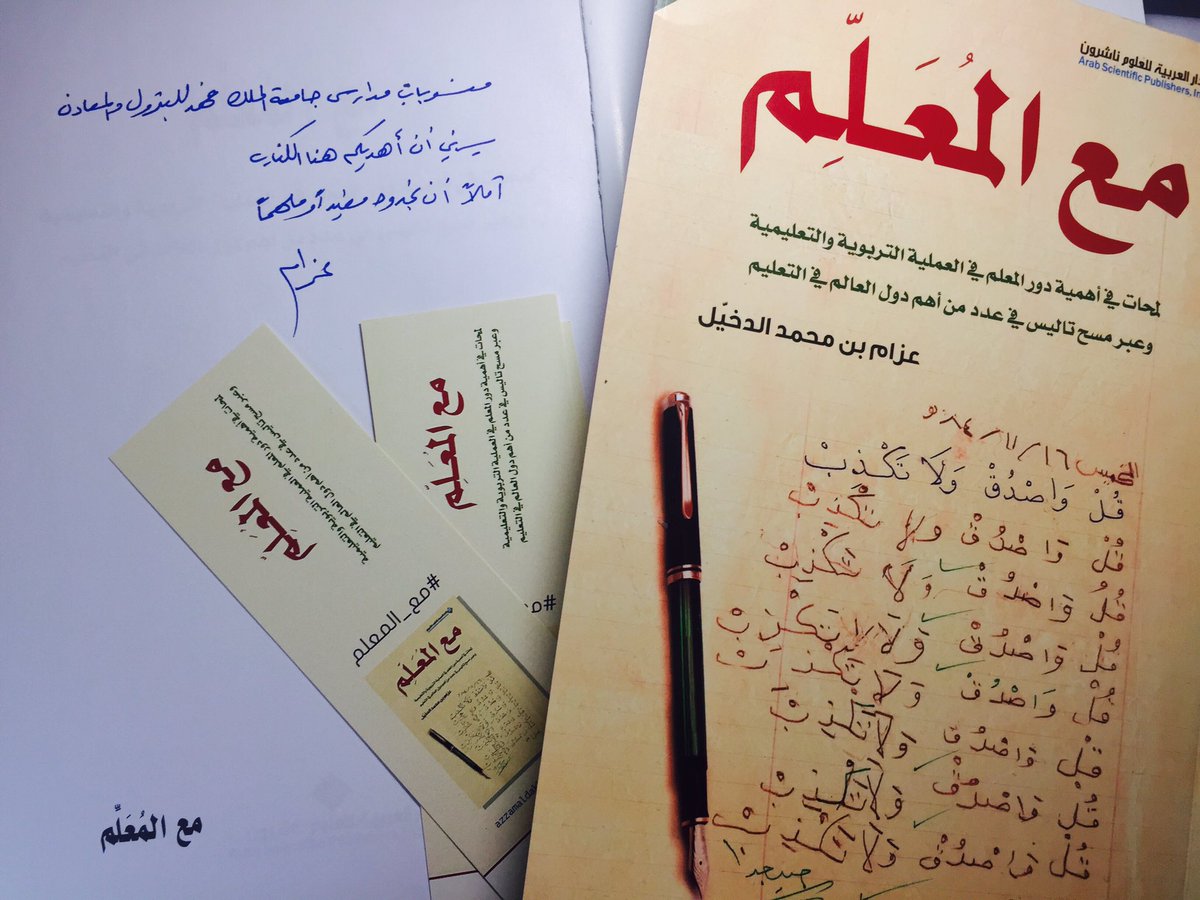 منسوبات مدارس جامعة الملك فهد للبترول والمعادن
يسرني أن أهديكم هذا الكتاب
آملاً أن تجدوه مفيداً وملهماً
عزام
مع المُعَلِّم
مع المُعَلِّم
لمحات في أهمية دور المعلم في العملية التربوية والتعليمية
وعبر مسح تاليس في عدد من أهم دول العالم في التعليم
#مع_المعلم
مع المُعَلِّم
azzamalda
مع المُعَلِّم
لمحات في أهمية دور المعلم في العملية التربوية والتعليمية
وعبر مسح تاليس في عدد من أهم دول العالم في التعليم
#م
دار العربية للعلوم ناشرون
Arab Scientific Publishers, In
مع المُعَلِّم
لمحات في أهمية دور المعلم في العملية التربوية والتعليمية
وعبر مسح تاليس في عدد من أهم دول العالم في التعليم
عزام بن محمد الدخيّل
الخميس ١٦/١١/٨٤ هـ
قُلْ وَاصْدُقْ وَلَا تَكْذِبْ
قُلْ وَاصْدُقْ وَلَا تَكْذِبْ
قُلْ وَاصْدُقْ وَلَا تَكْذِبْ
قُلْ وَاصْدُقْ وَلَا تَكْذِبْ
قُلْ وَاصْدُقْ وَلَا تَكْذِبْ
قُلْ وَاصْدُقْ وَلَا تَكْذِبْ
قُلْ وَاصْدُقْ وَلَا تَكْذِبْ
قُلْ وَاصْدُقْ وَلَا تَكْذِبْ
جيد جداً